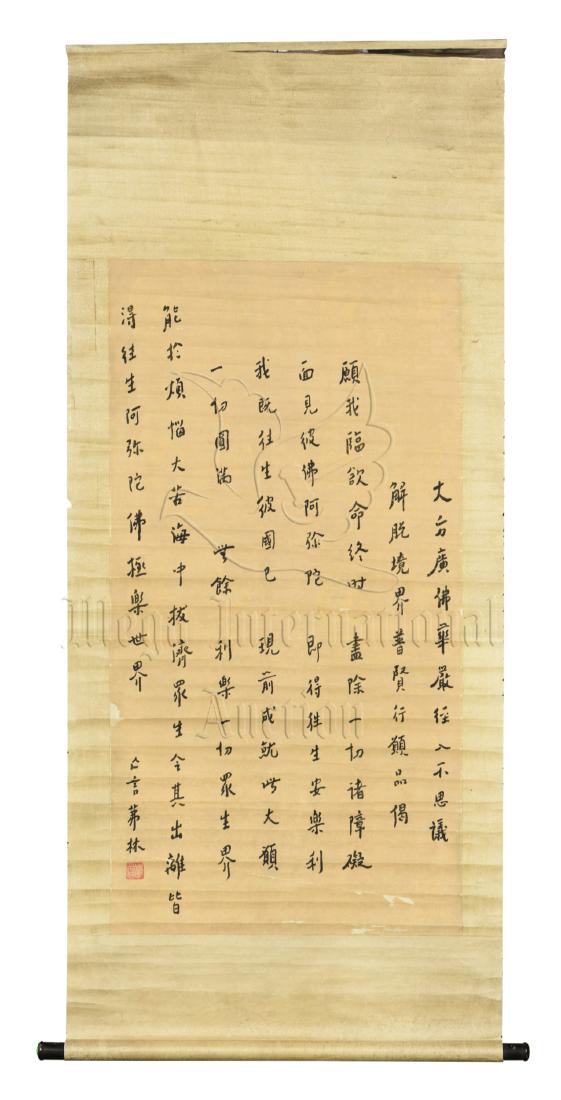 大方廣佛華嚴經入不思議
解脫境界普賢行願品偈
願我臨欲命終時 盡除一切諸障礙
面見彼佛阿弥陀 即得往生安樂利
我既往生彼國已 現前成就此大願
一切圓滿 無餘 利樂一切眾生界
能於煩惱大苦海中拔濟眾生令其出離皆
得往生阿弥陀佛極樂世界 言 林
Mega International
Auction